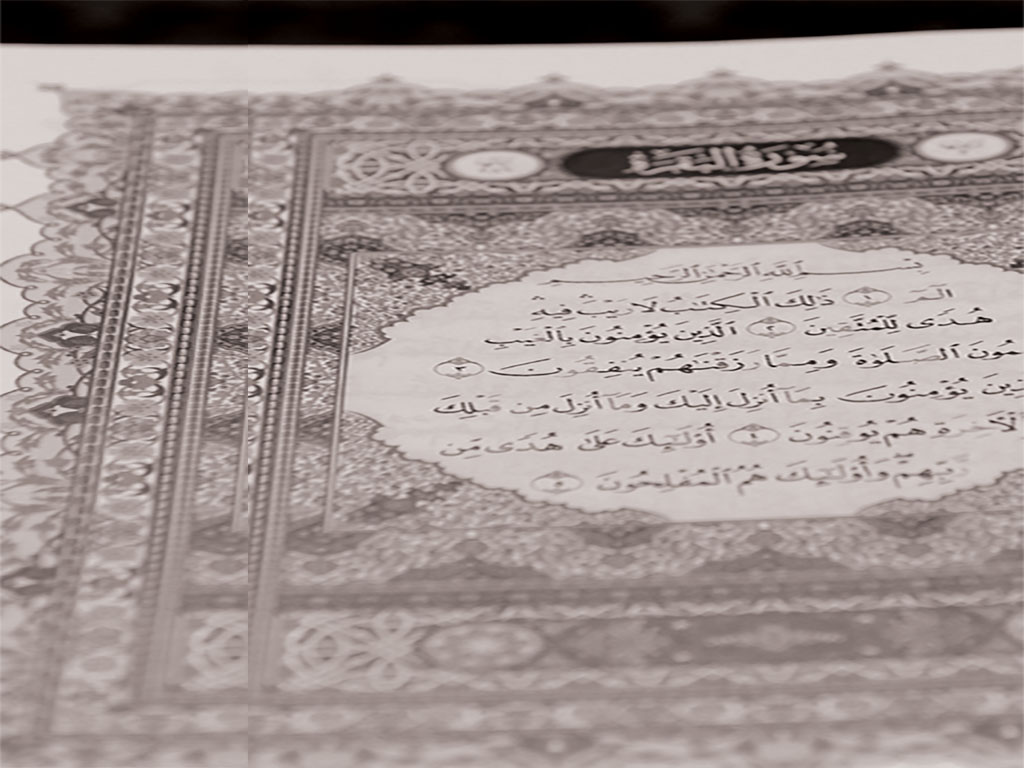 سُورَةُ البَقَرَةِ
بِسْمِ ٱللَّهِ ٱلرَّحْمَٰنِ ٱلرَّحِيمِ
الٓمٓ ١ ذَٰلِكَ ٱلْكِتَٰبُ لَا رَيْبَ فِيهِ
هُدًى لِّلْمُتَّقِينَ ٢ ٱلَّذِينَ يُؤْمِنُونَ بِٱلْغَيْبِ
ٱلصَّلَوٰةَ وَمِمَّا رَزَقْنَٰهُمْ يُنفِقُونَ ٣
يُؤْمِنُونَ بِمَآ أُنزِلَ إِلَيْكَ وَمَآ أُنزِلَ مِن قَبْلِكَ
هُمْ يُوقِنُونَ ٤ أُو۟لَٰٓئِكَ عَلَىٰ هُدًى مِّن
رَّبِّهِمْ وَأُو۟لَٰٓئِكَ هُمُ ٱلْمُفْلِحُونَ ٥